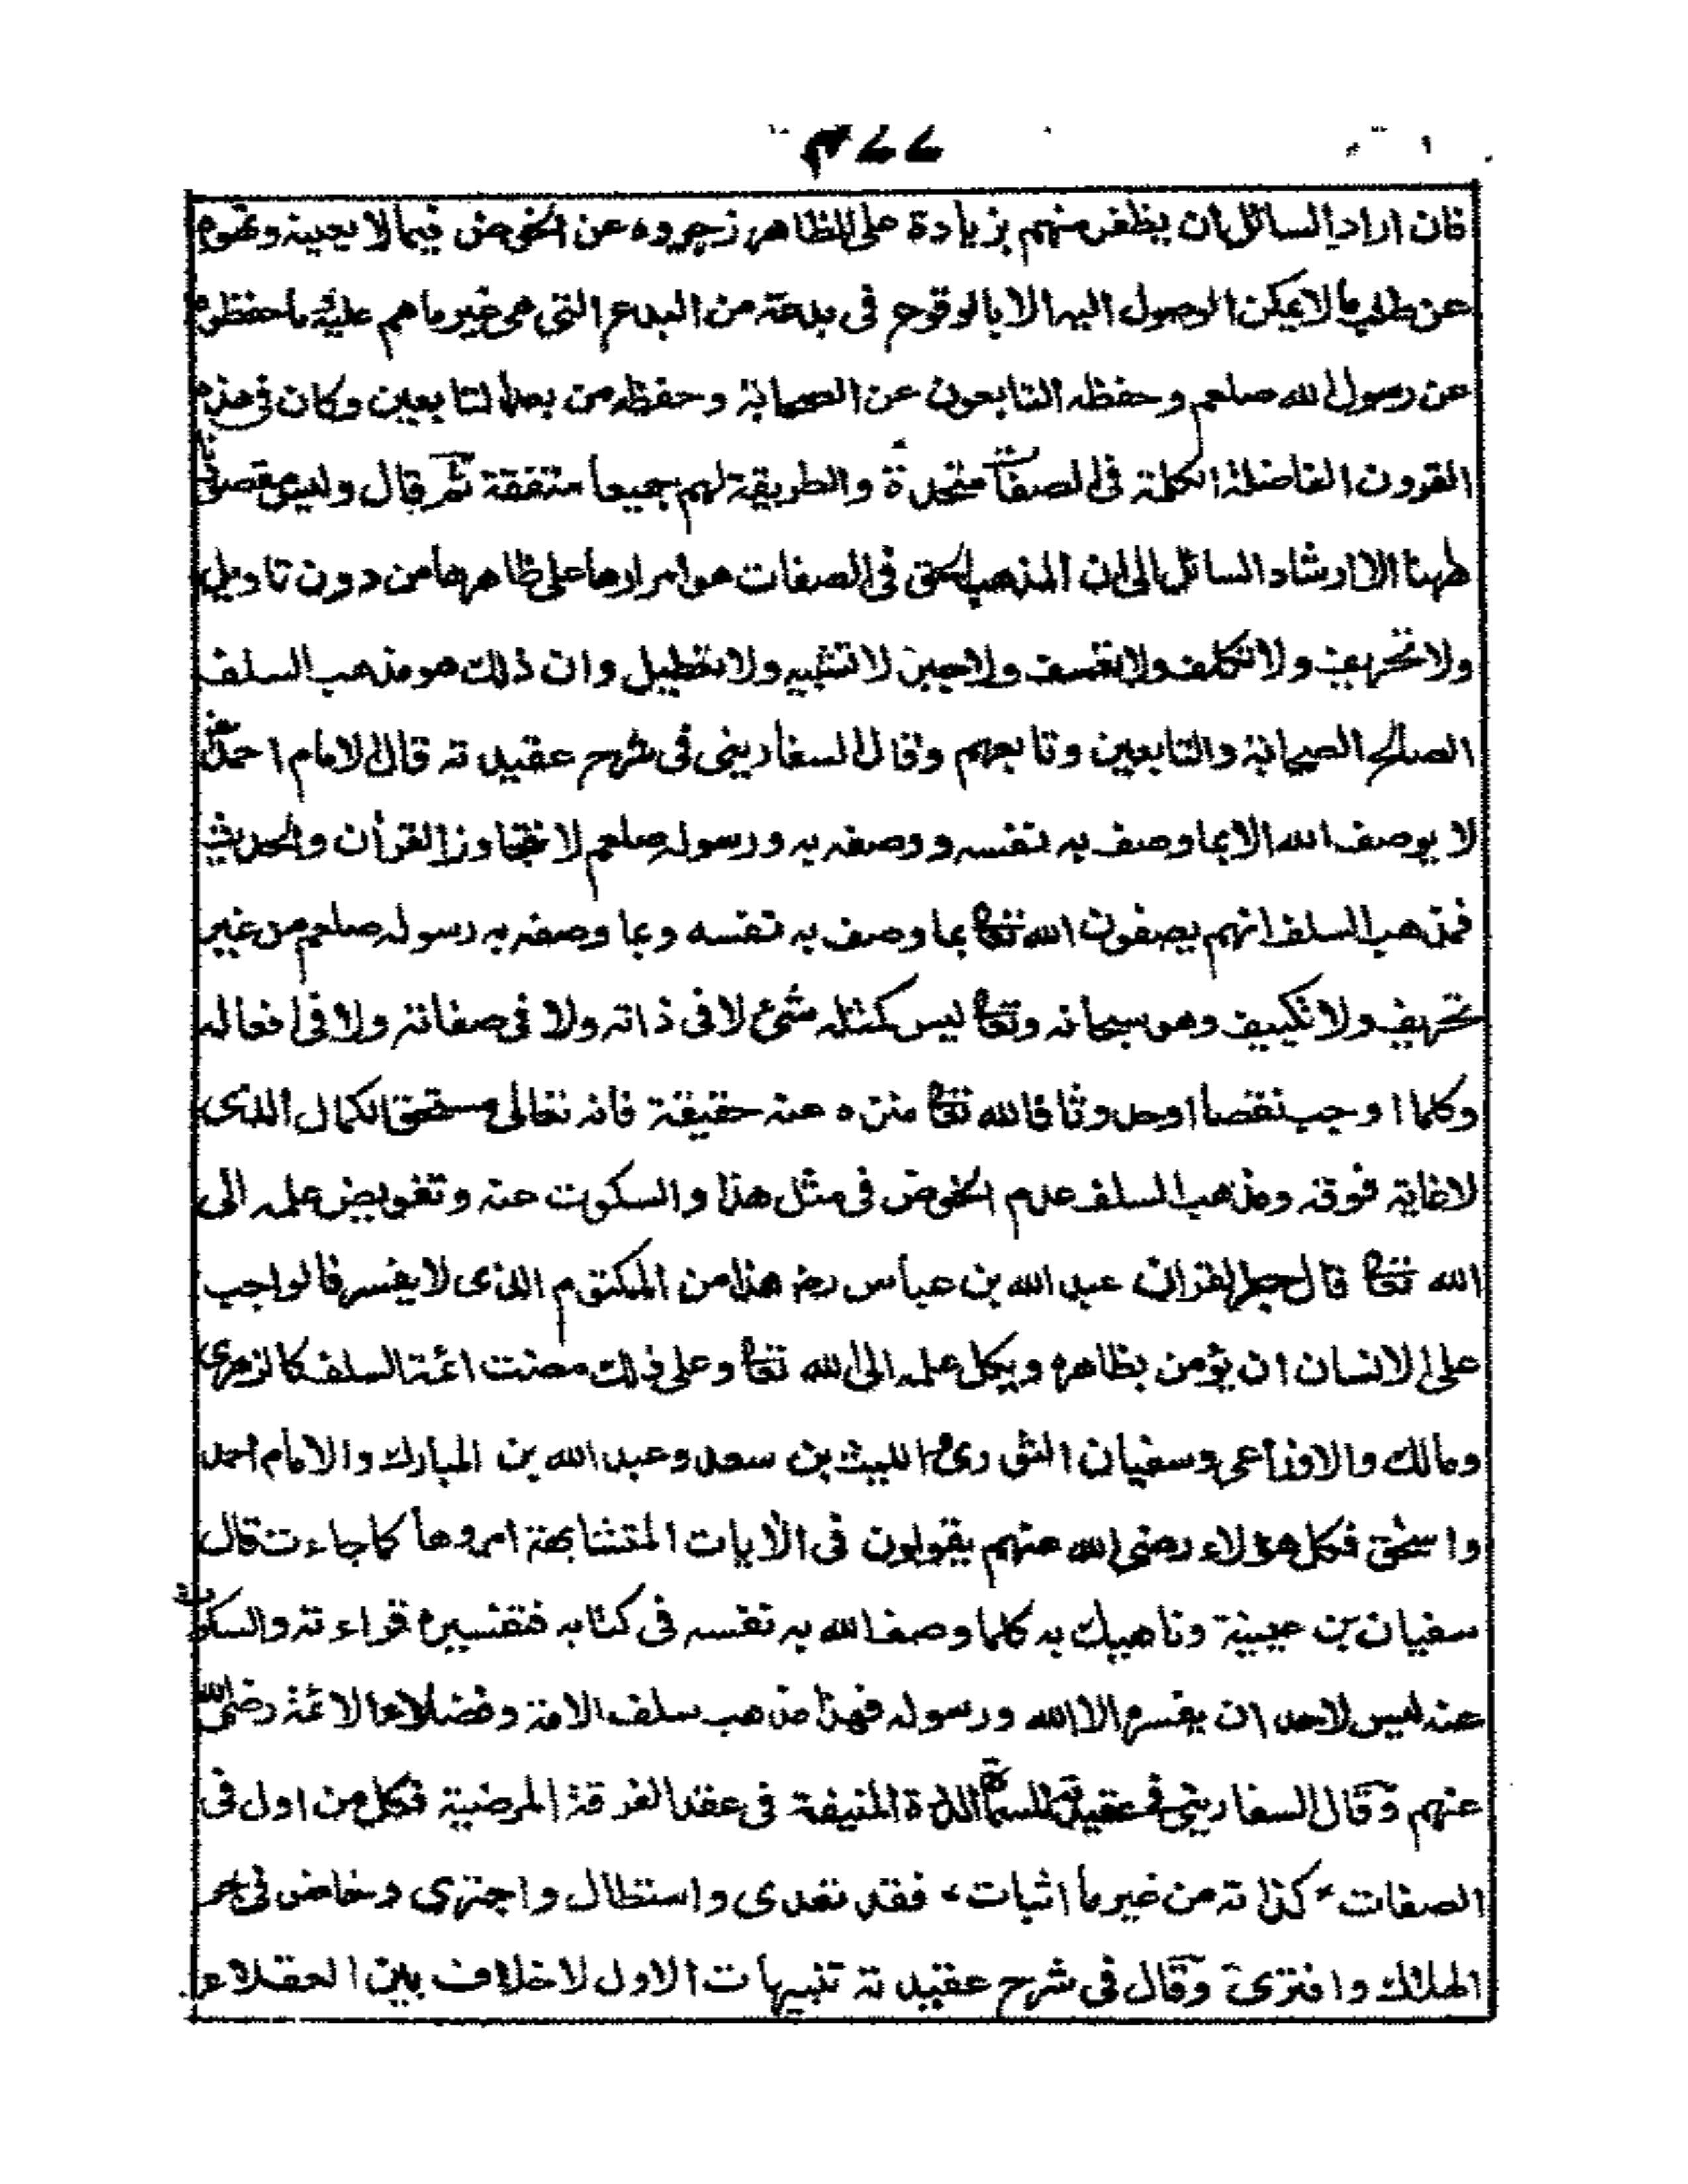 فان اراد السائل ان يظفر منهم بزيادة على الظاهر زجروه عن الخوض فيما لا يعينه ونهوه
عن طلب ما لا يمكن الوصول اليه الا بالوقوع في بدعة من البدع التي هي غير ما هم عليه وما حفظوه
عن رسول الله صلعم وحفظه التابعون عن الصحابة وحفظه من بعد التابعين وكان في هذه
القرون الفاضلة الكلمة في الصفات متحدة والطريقة لهم جميعا متفقة ثم قال وليس مقصودنا
ههنا الا ارشاد السائل الى ان المذهب الحق في الصفات هو امرارها على ظاهرها من دون تاويل
ولا تحريف ولا تكلف ولا تعسف ولا جبر لا تشبيه ولا تعطيل وان ذلك هو مذهب السلف
الصالح الصحابة والتابعين وتابعهم وقال السفاريني في شرح عقيدته قال الامام احمد رض
لا يوصف الله الا بما وصف به نفسه ووصفه به ورسوله صلعم لا نتجاوز القرأن والحديث
فمذهب السلف انهم يصفون الله تعا بما وصف به نفسه وبما وصفه به رسوله صلعم من غير
تحريف ولا تكييف وهو سبحانه وتعا ليس كمثله شئ لا في ذاته ولا في صفاته ولا في افعاله
وكلما اوجب نقصا او حدوثا فالله تعا منزه عنه حقيقة فانه تعالى مستحق الكمال الذى
لا غاية فوقه ومذهب السلف عدم الخوض في مثل هذا والسكوت عنه وتفويض علمه الى
الله تعا قال حبر القران عبد الله بن عباس رض هذا من المكتوم الذى لا يفسر فالواجب
على الانسان ان يؤمن بظاهره ويكل علمه الى الله تعا وعلى ذلك مضت ائمة السلف كالزهرى
ومالك والاوزاعى وسفيان الثورى والليث بن سعد وعبد الله بن المبارك والامام احمد
واسحق فكل هؤلاء رضى الله عنهم يقولون في الأيات المتشابهة امروها كما جاءت قال
سفيان بن عيينة وناهيك به كلما وصف الله به نفسه في كتابه فتفسيره قراءته والسكوت
عنه ليس لاحد ان يفسره الا الله ورسوله فهذا مذهب سلف الامة وفضلاء الائمة رضى الله
عنهم وقال السفاريني في عقيدته المسماة الدرة المنيفة في عقد الفرقة المرضية فكل من اول في
الصفات، كذاته من غير ما اثبات، فقد تعدى واستطال واجترى وخاض في بحر
الهلاك وافترى وقال في شرح عقيدته تنبيهات الاول لا خلاف بين العقلاء